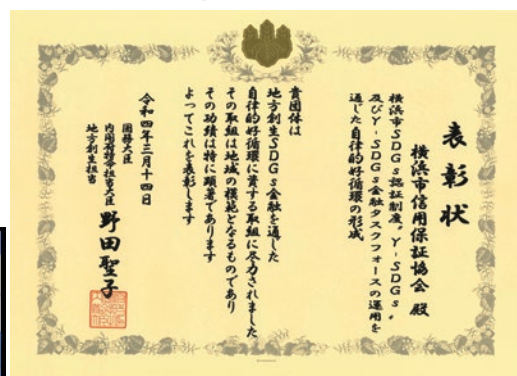 表彰状
横浜市信用保証協会 殿
横浜市SDGs認証制度“Y-SDGs”
及びY-SDGs金融タスクフォースの運用を
通した自律的好循環の形成
貴団体は
地方創生SDGs金融を通した
自律的好循環に資する取組に尽力されました
その取組は地域の模範となるものであり
その功績は特に顕著であります
よってこれを表彰します
令和四年三月十四日
国務大臣
内閣府特命担当大臣
地方創生担当
野田聖子